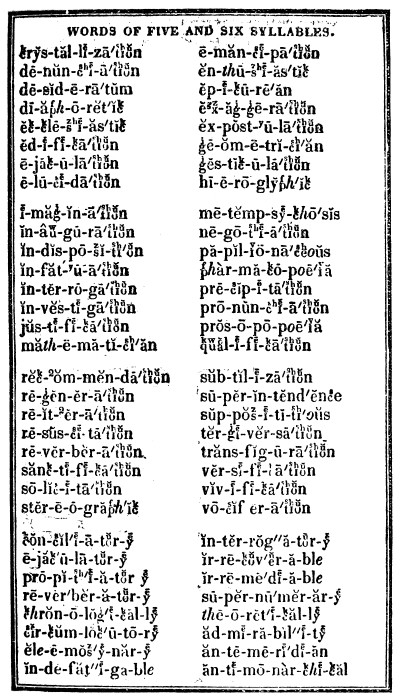 WORDS OF FIVE AND SIX SYLLABLES.
crȳs-tăl-lĭ-zā′tion
dē-nŭn-cī-ā′tion
dē-sĭd-ē-rā′tŭm
dī-ăph-ō-rĕt′ĭc
ĕc-clē-sĭ-ăs′tĭc
ĕd-ĭ-fĭ-cā′tion
ē-jăc-ū-lā′tion
ē-lū-cĭ-dā′tion
ē-măn-cĭ-pā′tion
ĕn-thū-sĭ-ăs′tĭc
ĕp-ĭ-cū-rē′ăn
ĕx-ăg-gē-rā′tion
ĕx-pŏst-ū-lā′tion
ġē-ŏm-ē-trĭ-cĭ′ăn
ġĕs-tĭc-ū-lā′tion
hī-ē-rō-glȳph′ĭc
ĭ-măġ-ĭn-ā′tion
ĭn-âu-gū-rā′tion
ĭn-dĭs-pō-sĭ-tion
ĭn-făt-ū-ā′tion
ĭn-tĕr-rō-gā′tion
ĭn-vĕs-tĭ-gā′tion
jŭs-tĭ-fĭ-cā′tion
măth-ē-mă-tĭ-cĭ′ăn
mē-tĕmp-sȳ-chō′sĭs
nē-gō-tĭ-ā′tion
pă-pĭl-ĭō-nā′ceoŭs
phàr-mă-cō-poē′ĭă
prē-cĭp-ĭ-tā′tion
prō-nŭn-cĭ-ā′tion
prŏs-ō-pō-poē′ĭă
quăl-ĭ-fĭ-cā′tion
rĕc-ŏm-mĕn-dā′tion
rē-ġĕn-ĕr-ā′tion
rē-ĭt-ĕr-ā′tion
rē-sŭs-cĭ-tā′tion
rē-vĕr-bĕr-ā′tion
sănc-tĭ-fĭ-cā′tion
sō-lĭc-ĭ-tā′tion
stĕr-ē-ō-grăph′ĭc
sŭb-tĭl-ĭ-zā′tion
sū-pĕr-ĭn-tĕnd′ĕnce
sŭp-pŏs-ĭ-tĭ-tĭ′oŭs
tĕr-ġĭ-vĕr-sā′tion
trăns-fĭg-ū-rā′tion
vĕr-sĭ-fĭ-cā′tion
vĭv-ĭ-fĭ-cā′tion
vō-cĭf er-ā′tion
cŏn-cĭl′ĭ-ā-tŏr-ȳ
ē-jăc′ū-lā-tŏr-ȳ
prō-pĭ-tĭ′ă-tŏr ȳ
rē-vĕr′bĕr-ă-tŏr-ȳ
chrŏn-ō-lŏġ′ĭ-căl-lȳ
cĭr-cŭm-lŏc′ū-tō-rȳ
ĕle-ē-mŏs′ȳ-năr-ȳ
ĭn-dē-făt″ĭ-ga-ble
ĭn-tĕr-rŏg″ă-tŏr-ȳ
ĭr-rē-cŏv′ĕr-ă-ble
ĭr-rē-mē′dĭ-ă-ble
sū-pĕr-nū′mĕr-ăr-ȳ
thē-ō-rĕt′ĭ-căl-lȳ
ăd-mĭ-ră-bĭl″ĭ-tȳ
ăn-tē-mē-rĭ′dĭ-ăn
ăn-tĭ-mō-nàr-chĭ-căl